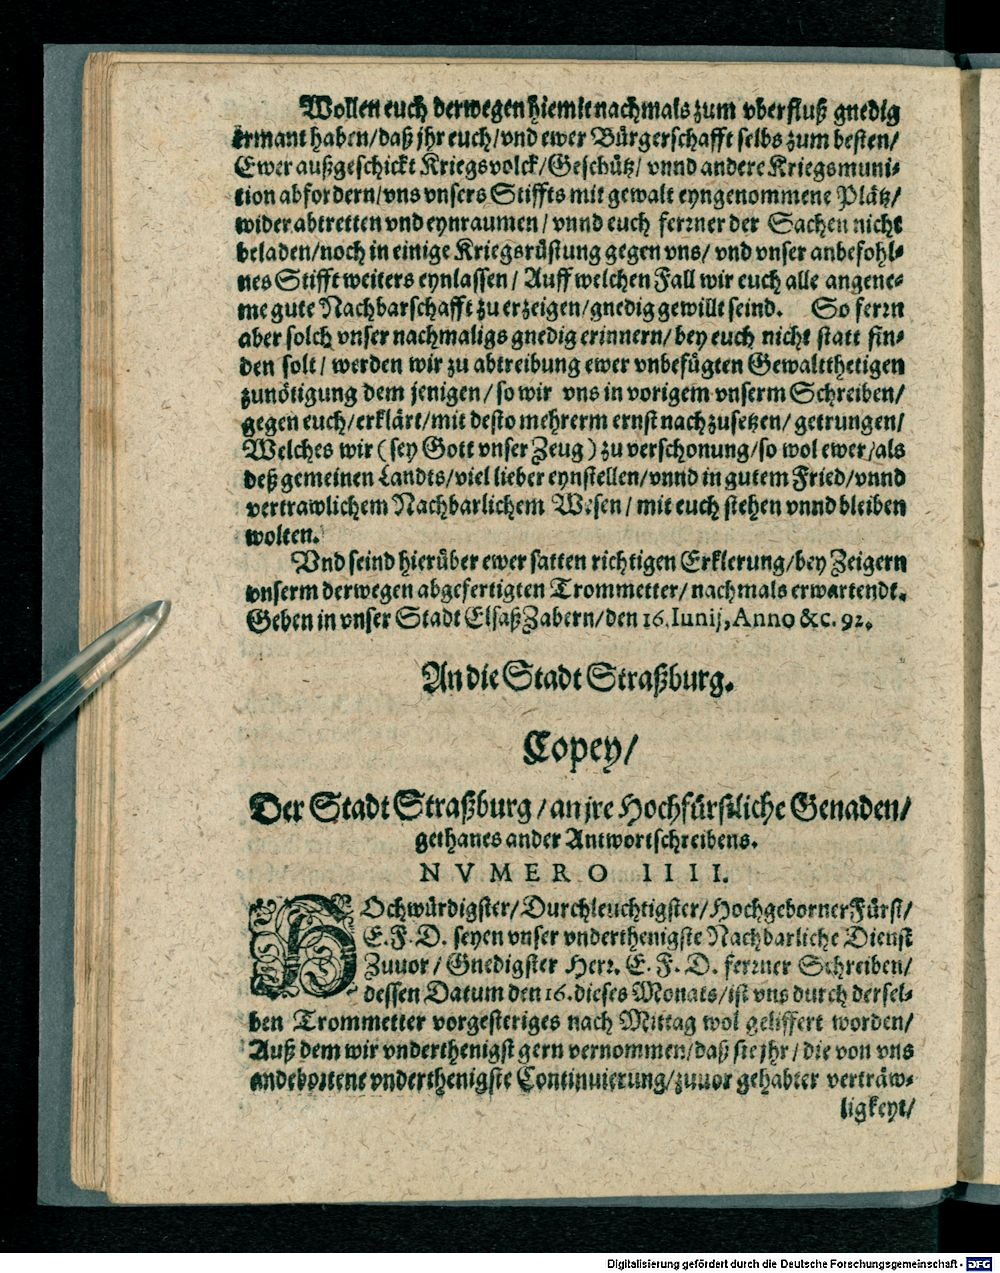 Wollen euch derwegen hiemit nachmals zum vberfluß gnedig
ermant haben/daß jhr euch/vnd ewer Bürgerschafft selbs zum besten/
Ewer außgeschickt Kriegsvolck/Geschütz/ vnnd andere Kriegsmuni-
tion abfordern/vns vnsers Stiffts mit gewalt eyngenommene Plätz/
wider abtretten vnd eynraumen/ vnnd euch ferrner der Sachen nicht
beladen/noch in einige Kriegsrüstung gegen vns/ vnd vnser anbefohl-
nes Stifft weiters eynlassen/ Auff welchen Fall wir euch alle angene-
me gute Nachbarschafft zu erzeigen/gnedig gewillt seind. So ferrn
aber solch vnser nachmaligs gnedig erinnern/bey euch nicht statt fin-
den solt/ werden wir zu abtreibung ewer vnbefügten Gewaltthetigen
zunötigung dem jenigen/so wir vns in vorigem vnserm Schreiben/
gegen euch/erklärt/mit desto mehrerm ernst nachzusetzen/ getrungen/
Welches wir (sey Gott vnser Zeug) zu verschonung/so wol ewer/als
deß gemeinen Landts/viel lieber eynstellen/vnnd in gutem Fried/vnnd
vertrawlichem Nachbarlichem Wesen/ mit euch stehen vnnd bleiben
wolten.
Vnd seind hierüber ewer satten richtigen Erklerung/bey Zeigern
vnserm derwegen abgefertigten Trommetter/ nachmals erwartendt.
Geben in vnser Stadt ElsaßZabern/den 16. Iunij, Anno &c. 92.
An die Stadt Straßburg.
Copey/
Der Stadt Straßburg/an jre Hochfürstliche Genaden/
gethanes ander Antwortschreibens.
NVMERO IIII.
HOchwürdigster/Durchleuchtigster/Hochgeborner Fürst/
E. F. D. seyen vnser vnderthenigste Nachbarliche Dienst
Zuuor/ Gnedigster Herr. E. F. D. ferrner Schreiben/
dessen Datum den 16. dieses Monats/ist vns durch dersel-
ben Trommetter vorgesteriges nach Mittag wol geliffert worden/
Auß dem wir vnderthenigst gern vernommen/daß sie jhr/die von vns
andebottene vnderthenigste Continuierung/zuuor gehabter verträw-
ligkeyt/
Digitalisierung gefördert durch die Deutsche Forschungsgemeinschaft - DFG